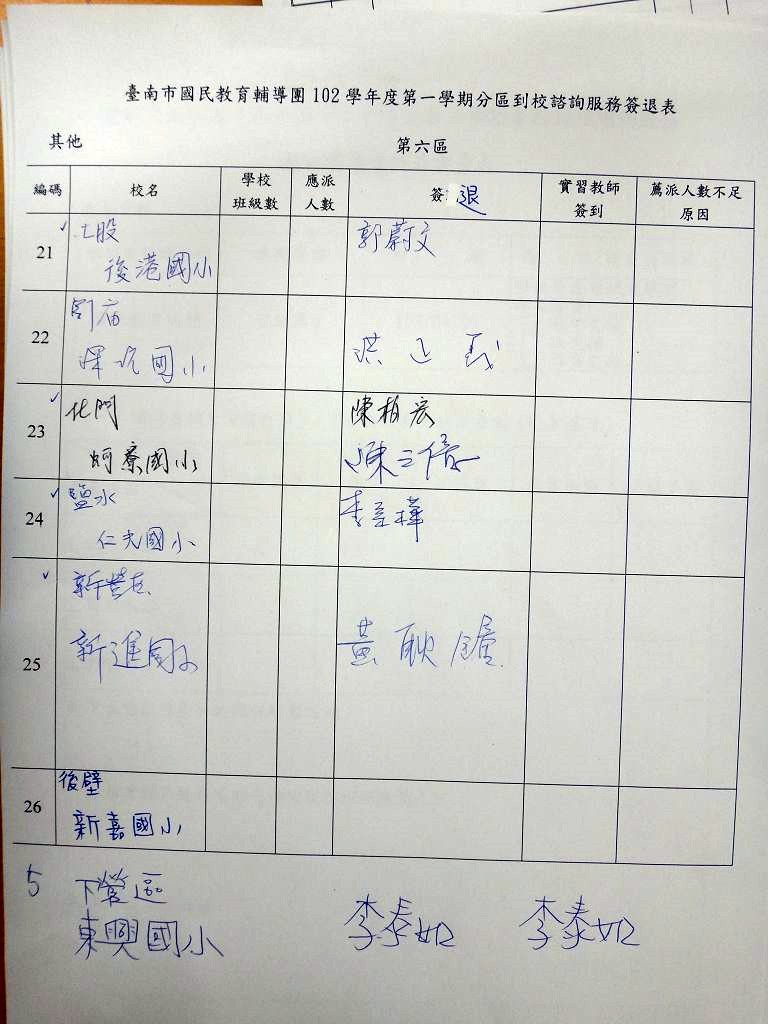 臺南市國民教育輔導團102學年度第一學期分區到校諮詢服務簽退表
其他 第六區
編碼 校名 學校班級數 應派人數 簽退 實習教師簽到 薦派人數不足原因
21 七股 郭蔚文
後港國小
22
國小 洪
23 北門 陳柏宏
蚵寮國小 陳
24 鹽水 李
仁光國小
25 新營區
新進國小 黃耿
26 後壁
新嘉國小
5 下營區
東興國小 李泰如 李泰如